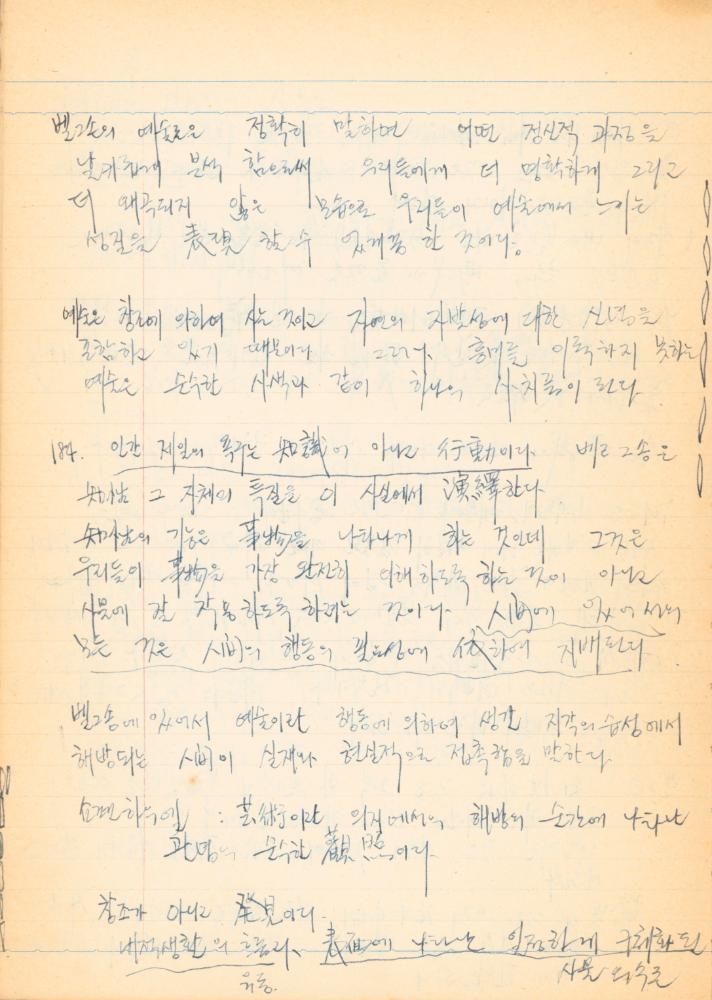 벨그송의 예술론은 정확히 말하면 어떤 정신적 과정을
날카롭게 분석 함으로써 우리들에게 더 명확하게 그리고
더 왜곡되지 않은 모습으로 우리들이 예술에서 느끼는
성질을 表現 할 수 있게끔 한 것이다.
예술은 창조에 의하여 사는 것이고 자연의 자발성에 대한 신념을
포함하고 있기 때문이다 그러나, 흥미를 이룩하지 못하는
예술은 순수한 사색과 같이 하나의 사치품이 된다
184. 인간 제일의 욕구는 知識이 아니고 行動이다. 베르그송은
知性 그 자체의 특질을 이 사실에서 演繹한다
知性의 기능은 事物을 나타나게 하는 것인데 그것은
우리들이 事物을 가장 완전히 이해하도록 하는 것이 아니고
사물에 잘 작용하도록 하려는 것이다. 知性에 있어서의
모든 것은 知性의 행동의 필요성에 依하여 지배된다
벨그송에 있어서 예술이란 행동에 의하여 생긴 지각의 습성에서
해방되는 知性이 실재와 현실적으로 접촉함을 말한다.
쇼펜하우엘 : 芸術이란 의지에서의 해방의 순간에 나타난
관념의 순수한 觀照이다.
창조가 아니고 発見이다.
내적생활의 흐름과, 表面에 나타나는 일정하게 구체화된
유동. 사물의 속도